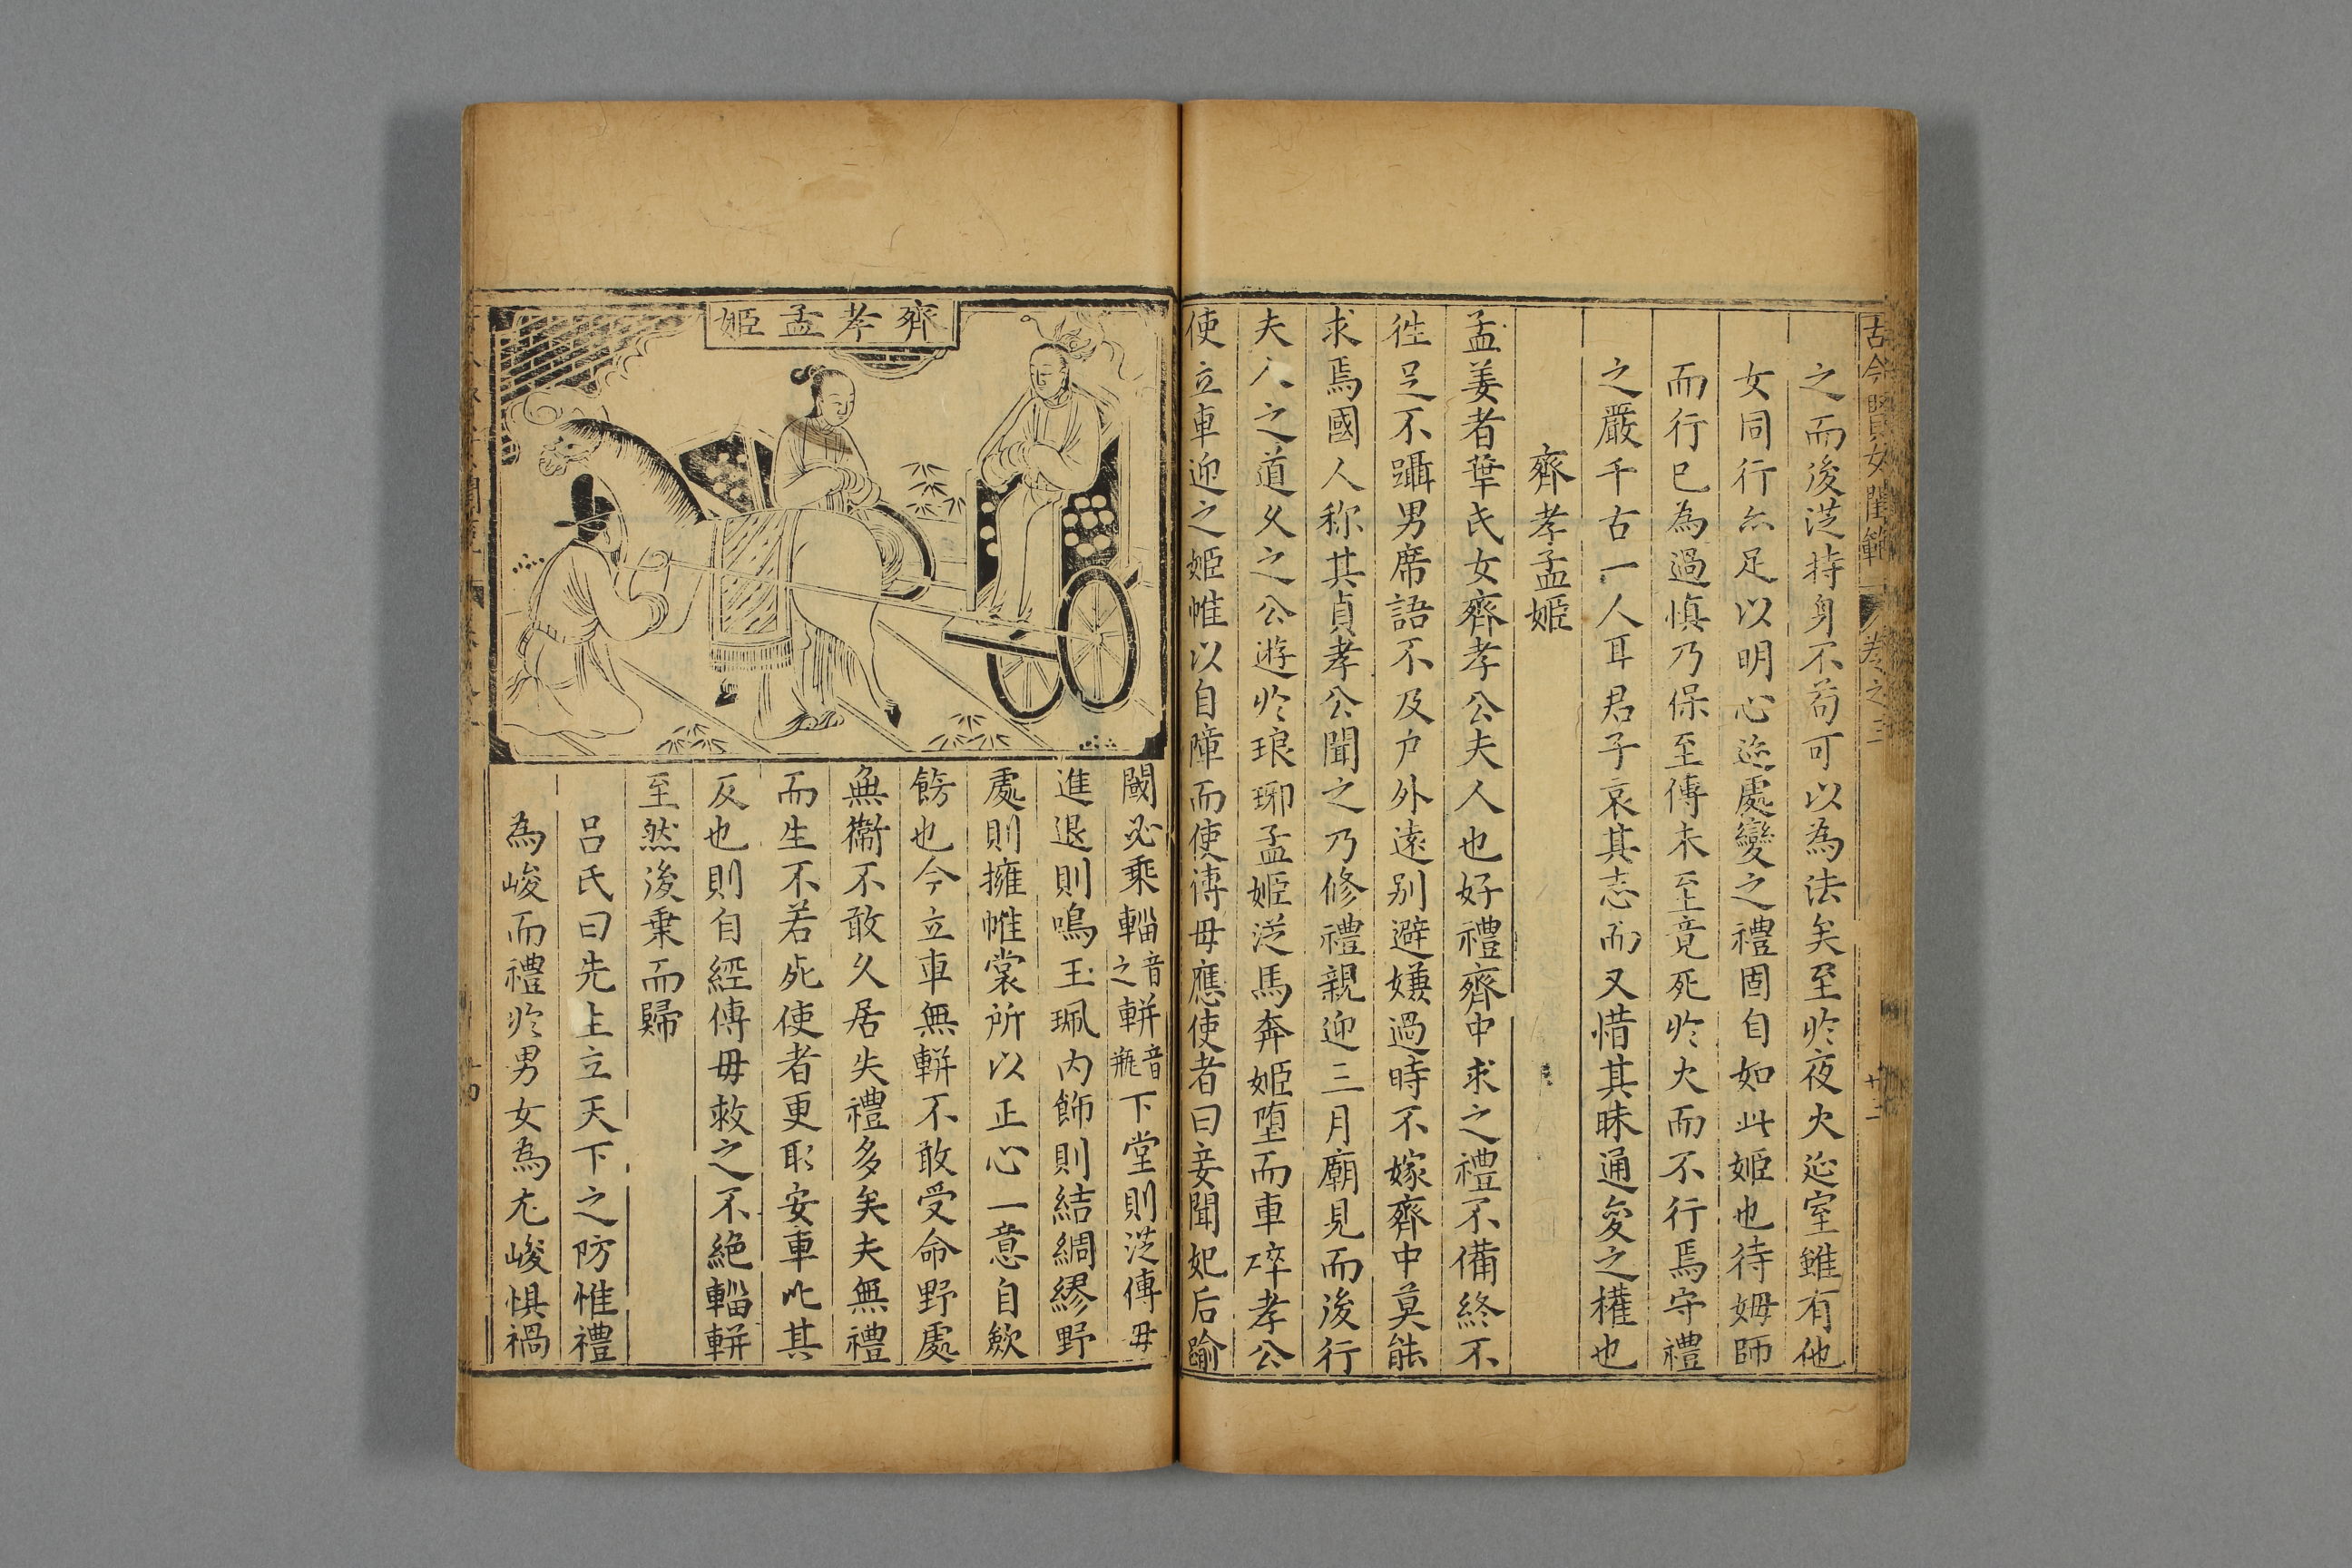 古今賢女閨範 卷之三 廿三
之而後從持身不苟可以為法矣至於夜火延室雖有他
女同行亦足以明心迹處變之禮固自如此姬也待姆師
而行已為過慎乃保至傅未至竟死於火而不行焉守禮
之嚴千古一人耳君子哀其志而又惜其昧通變之權也
齊孝孟姬
孟姜者華氏女齊孝公夫人也好禮齊中求之禮不備終不
徃足不躡男席語不及户外遠别避嫌過時不嫁齊中莫能
求焉國人称其貞孝公聞之乃修禮親迎三月廟見而後行
夫人之道久之公遊於琅琊孟姬從馬奔姬墮而車碎孝公
使立車迎之姬帷以自障而使傅毋應使者曰妾聞妃后踰
齊孝孟姬
閾必乘輜音之軿音瓶下堂則從傅毋
進退則鳴玉珮内飾則結綢繆野
處則擁帷裳所以正心一意自歛
餝也今立車無軿不敢受命野處
無衛不敢久居失禮多矣夫無禮
而生不若死使者更取安車比其
反也則自經傅毋救之不絶輜軿
至然後乗而歸
呂氏曰先王立天下之防惟禮
為峻而禮於男女為尤峻惧禍